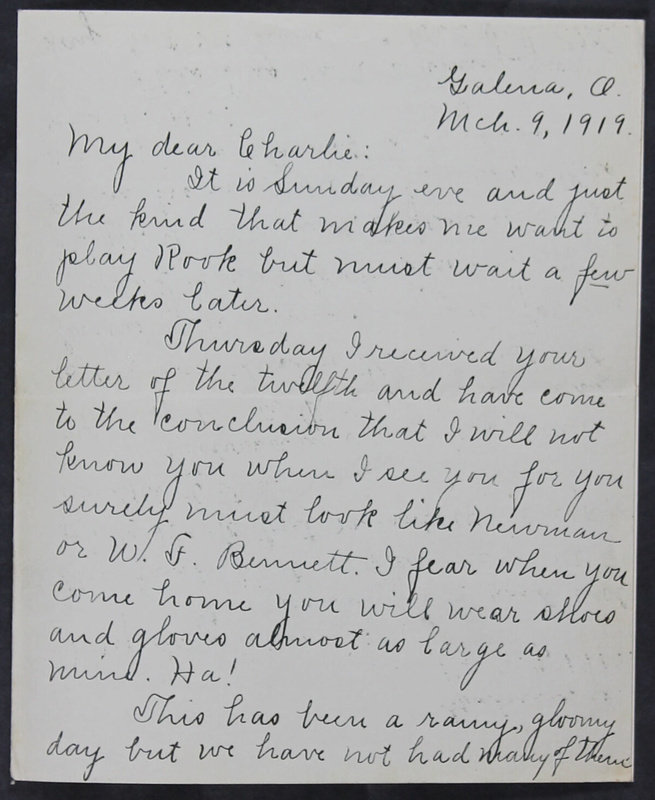 Galena, O.
Mch. 9, 1919.
My dear Charlie:
It is Sunday eve and just
the kind that makes me want to
play Rook but must wait a few
weeks later.
Thursday I received your
letter of the twelfth and have come
to the conclusion that I will not
know you when I see you for you
surely must look like Newman
or W. F. Bennett. I fear when you
come home you will wear shoes
and gloves almost as large as
mine. Ha!
This has been a rainy, gloomy
day but we have not had many of them